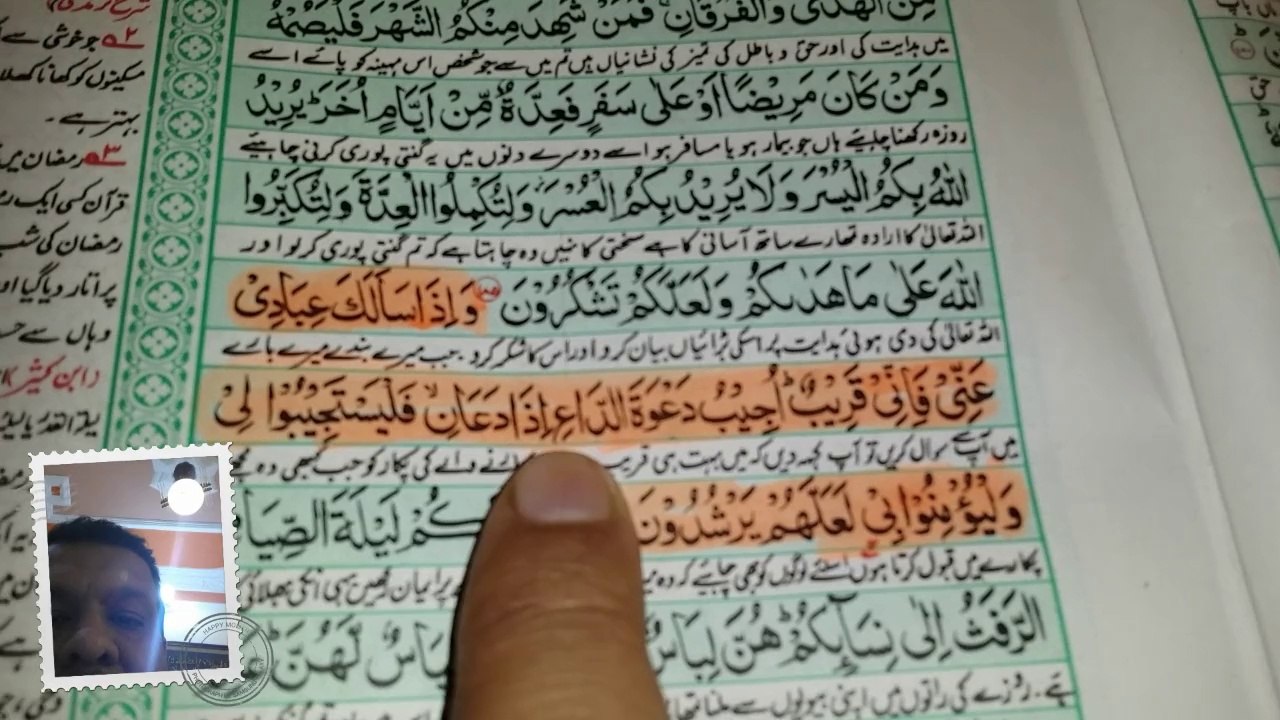 مِنَ الْهُدٰى وَالْفُرْقَانِ ۚ فَمَنْ شَهِدَ مِنْكُمُ الشَّهْرَ فَلْيَصُمْهُ
میں ہدایت کی اور حق و باطل کی تمیز کی نشانیاں ہیں تم میں سے جو شخص اس مہینہ کو پائے اسے
وَمَنْ كَانَ مَرِيْضًا اَوْ عَلٰى سَفَرٍ فَعِدَّةٌ مِّنْ اَيَّامٍ اُخَرَ ؕ يُرِيْدُ
روزہ رکھنا چاہیے ہاں جو بیمار ہو یا مسافر ہو اسے دوسرے دنوں میں یہ گنتی پوری کرنی چاہیے
اللّٰهُ بِكُمُ الْيُسْرَ وَلَا يُرِيْدُ بِكُمُ الْعُسْرَ ۫ وَلِتُكْمِلُوا الْعِدَّةَ وَلِتُكَبِّرُوا
اللہ تعالیٰ کا ارادہ تمہارے ساتھ آسانی کا ہے سختی کا نہیں وہ چاہتا ہے کہ تم گنتی پوری کر لو اور
اللّٰهَ عَلٰى مَا هَدٰىكُمْ وَلَعَلَّكُمْ تَشْكُرُوْنَ وَاِذَا سَاَلَكَ عِبَادِيْ
اللہ تعالیٰ کی دی ہوئی ہدایت پر اسکی بڑائیاں بیان کرو اور اس کا شکر کرو . جب میرے بندے میرے بارے
عَنِّيْ فَاِنِّيْ قَرِيْبٌ ؕ اُجِيْبُ دَعْوَةَ الدَّاعِ اِذَا دَعَانِ ۙ فَلْيَسْتَجِيْبُوْا لِيْ
میں آپ سے سوال کریں تو آپ کہہ دیں کہ میں بہت ہی قریب والے کی پکار کو جب کبھی وہ
وَلْيُؤْمِنُوْا بِيْ لَعَلَّهُمْ يَرْشُدُوْنَ كُمْ لَيْلَةَ الصِّيَا
پکارے میں قبول کرتا ہوں اسلئے لوگوں کو بھی چاہیے کہ وہ پر ایمان رکھیں یہی انکی بھلائی
الرَّفَثُ اِلٰى نِسَآىِٕكُمْ ؕ هُنَّ لِبَاسٌ لَّهُنَّ
ہے . روزے کی راتوں میں اپنی بیویوں سے ملنا
۲ جو خوشی سے
مسکینوں کو کھانا کھلا
بہتر ہے .
۳ رمضان میں
قرآن کسی ایک
رمضان کی شب
پر اتار دیا گیا او
وہاں سے
(ابن کثیر)
HAPPY